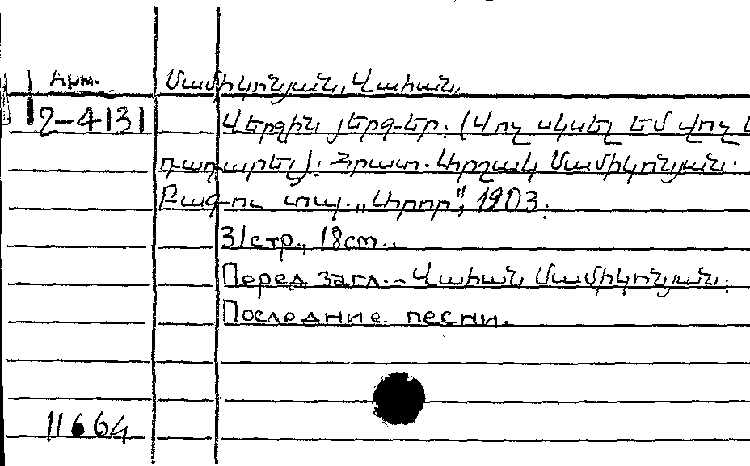 Арм.
Մամիկոնյան, Վահան.
2-4131
Վերջին յերգ-եր. (Վոչ սկսել եմ վոչ
դադարել): Հրատ. Արշակ Մամիկոնյան.
Բագ-ու տպ. „Արոր", 1903.
31стр., 18см..
Перед загл.-Վահան Մամիկոնյան.
Последние песни.
11664